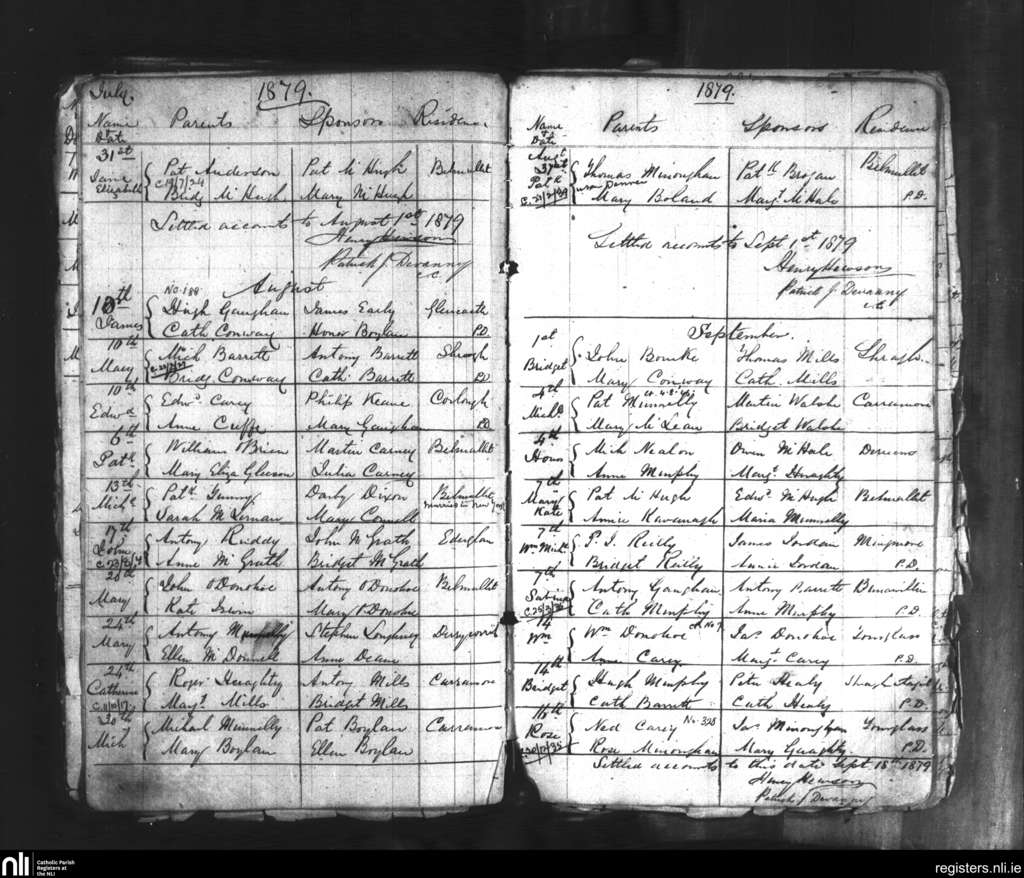 July. 1879.
Name & Date Parents Sponsors Residence
31st Pat Anderson Pat McHugh Belmullet
Jane Elizabeth Bidg McHugh Mary McHugh
Settled accounts to August 1st 1879
Henry Hewson
Patrick J. Devanny
C.C.
August
No. 188
10th Hugh Gaughan James Early Glencastle
James Cath Conway Honor Boylan P.D.
10th Mich Barrett Antony Barrett Shragh
Mary Bridg. Conway Cath. Barrett P.D.
10th Edwd. Carey Philip Keane Corlough
Edwd Anne Cuffe Mary Gaughan P.D.
6th William O'Brien Martin Carney Belmullet
Patk Mary Eliza Gleeson Julia Carney
13th Patk. Gunny Darby Dixon Belmullet
Michl Sarah McLernan Mary Connell married in New York
17th Antony Ruddy John McGrath Ederglan
John Anne McGrath Bridget McGrath
20th John O'Donohoe Antony O'Donohoe Belmullet
Mary Kate Irwin Mary O'Donohoe
24th Antony Munnelly Stephen Loughney
Mary Ellen McDonnell Anne Deane
24th Roger Heraghty Antony Mills Carramore
Catherine Mayt. Mills Bridget Mills
30th Michal Munnelly Pat Boylan Carramore
Mich Mary Boylan Ellen Boylan
1879.
Name & Date Parents Sponsors Residence
Augt 31st Thomas Minoghan Patk Brogan Belmullet
Patk Mary Boland Mayt. McHale P.D.
Settled accounts to Sept 1st 1879
Henry Hewson
Patrick J. Devanny
C.C.
September.
1st John Bourke Thomas Mills Shragh
Bridget Mary Conway Cath. Mills
4th Pat Munnelly Martin Walshe Carramore
Michl Mary McLean Bridget Walshe
4th Mich Nealon Owen McHale Derreens
Honor Anne Murphy Mayt. Heraghty
7th Pat McHugh Edwd. McHugh Belmullet
Mary Kate Annie Kavanagh Maria Munnelly
7th P. J. Reilly James Jordan
Wm Michl Bridget Reilly Annie Jordan P.D.
7th Antony Gaughan Antony Barrett
Sabina Cath Murphy Anne Murphy P.D.
14 Wm Donohoe Jas Donohoe
Wm Anne Carey Mayt. Carey P.D.
14th Hugh Murphy Peter Healy Shragh
Bridget Cath Barrett Cath Healy P.D.
16th Ned Carey No. 328 Jas Minoghan
Rose Rose Minoghan Mary Geraghty P.D.
Settled accounts to this date Sept 18th 1879
Henry Hewson
Patrick J Devanny
nli Catholic Parish
Registers at
the NLI
registers.nli.ie